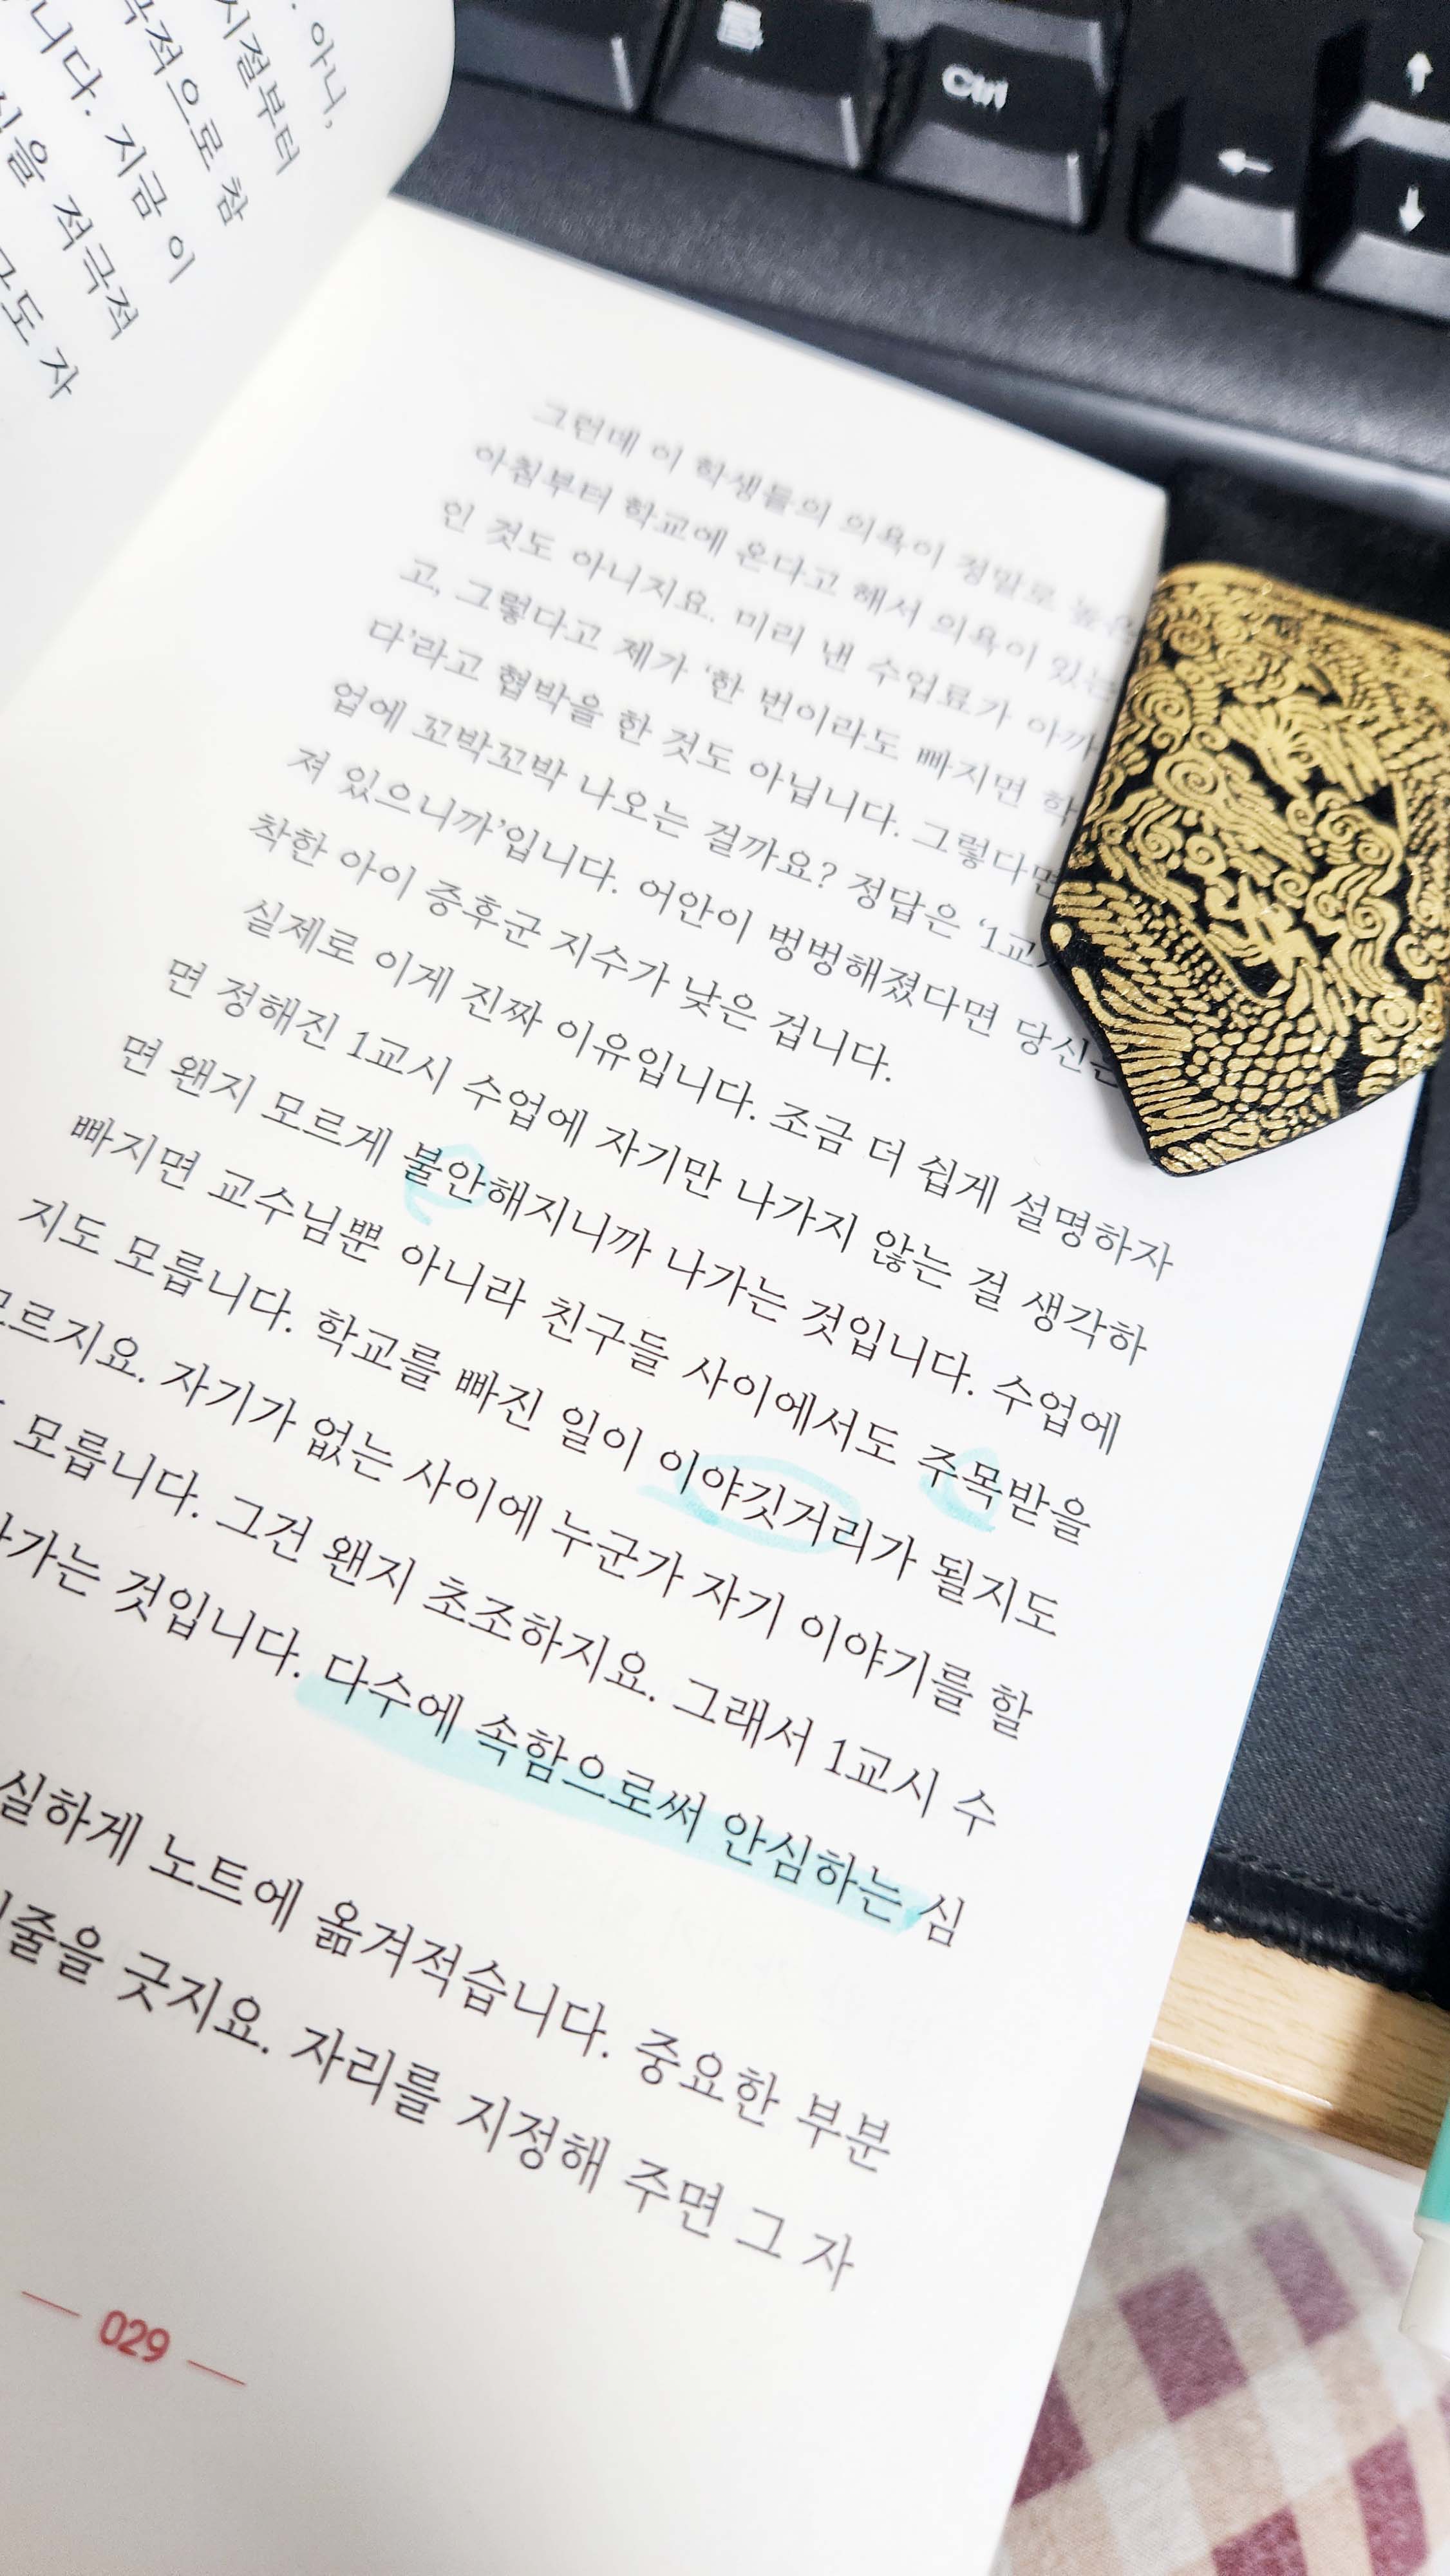 아니,
시절부터
극적으로 참
니다. 지금 이
신을 적극적
구도 자
Ctrl
그런데 이 학생들의 의욕이 정말로
아침부터 학교에 온다고 해서 의욕이 있는
인 것도 아니지요. 미리 낸 수업료가
고, 그렇다고 제가 ‘한 번이라도 빠지면
다’라고 협박을 한 것도 아닙니다. 그렇다면
업에 꼬박꼬박 나오는 걸까요? 정답은 ‘1교
져 있으니까’입니다. 어안이 벙벙해졌다면 당신은
착한 아이 증후군 지수가 낮은 겁니다.
실제로 이게 진짜 이유입니다. 조금 더 쉽게 설명하자
면 정해진 1교시 수업에 자기만 나가지 않는 걸 생각하
면 왠지 모르게 불안해지니까 나가는 것입니다. 수업에
빠지면 교수님뿐 아니라 친구들 사이에서도 주목받을
지도 모릅니다. 학교를 빠진 일이 이야깃거리가 될지도
모르지요. 자기가 없는 사이에 누군가 자기 이야기를 할
모릅니다. 그건 왠지 초조하지요. 그래서 1교시 수
나가는 것입니다. 다수에 속함으로써 안심하는 심
실하게 노트에 옮겨적습니다. 중요한 부분
줄을 긋지요. 자리를 지정해 주면 그 자
029